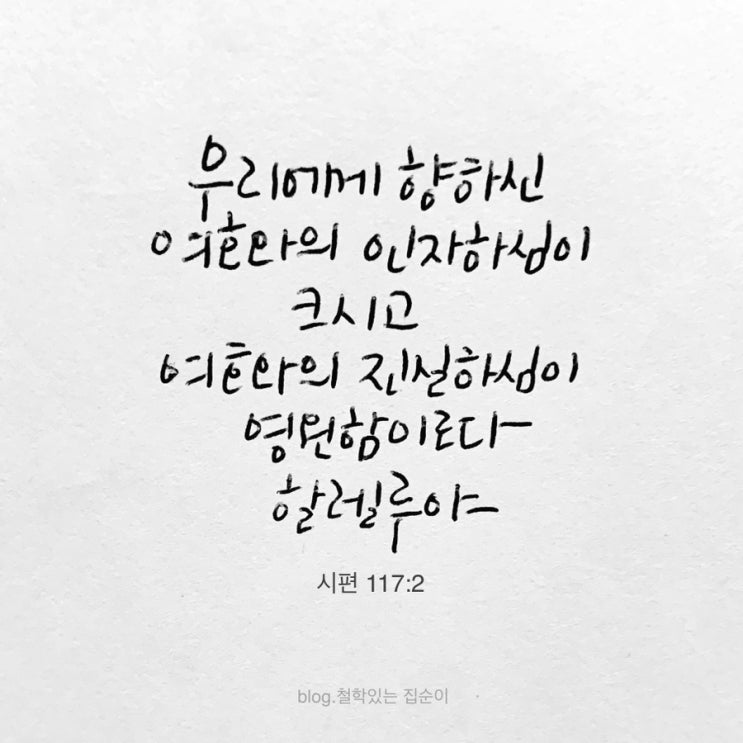 우리에게 향하신
여호와의 인자하심이
크시고
여호와의 진실하심이
영원함이로다
할렐루야
시편 117:2
blog.철학있는 집순이